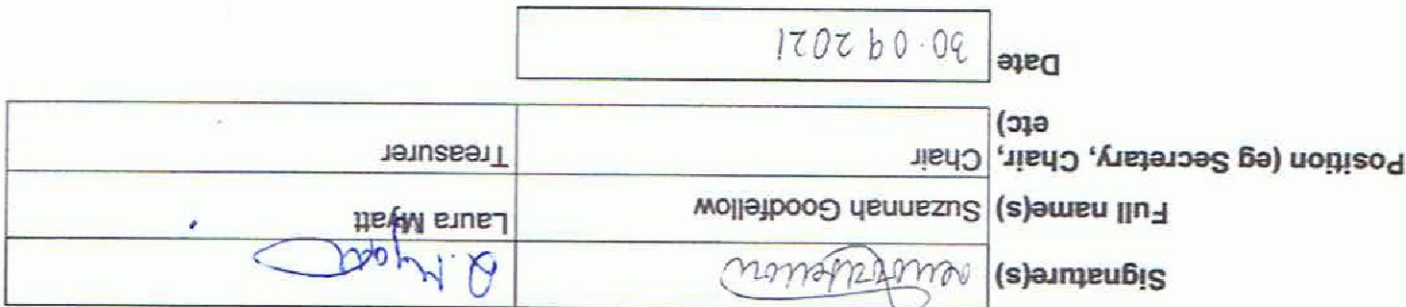 Signature(s)
Full name(s) Suzannah Goodfellow Laura Myatt
Position (eg Secretary, Chair, Chair Treasurer
etc)
Date 30.09 2021